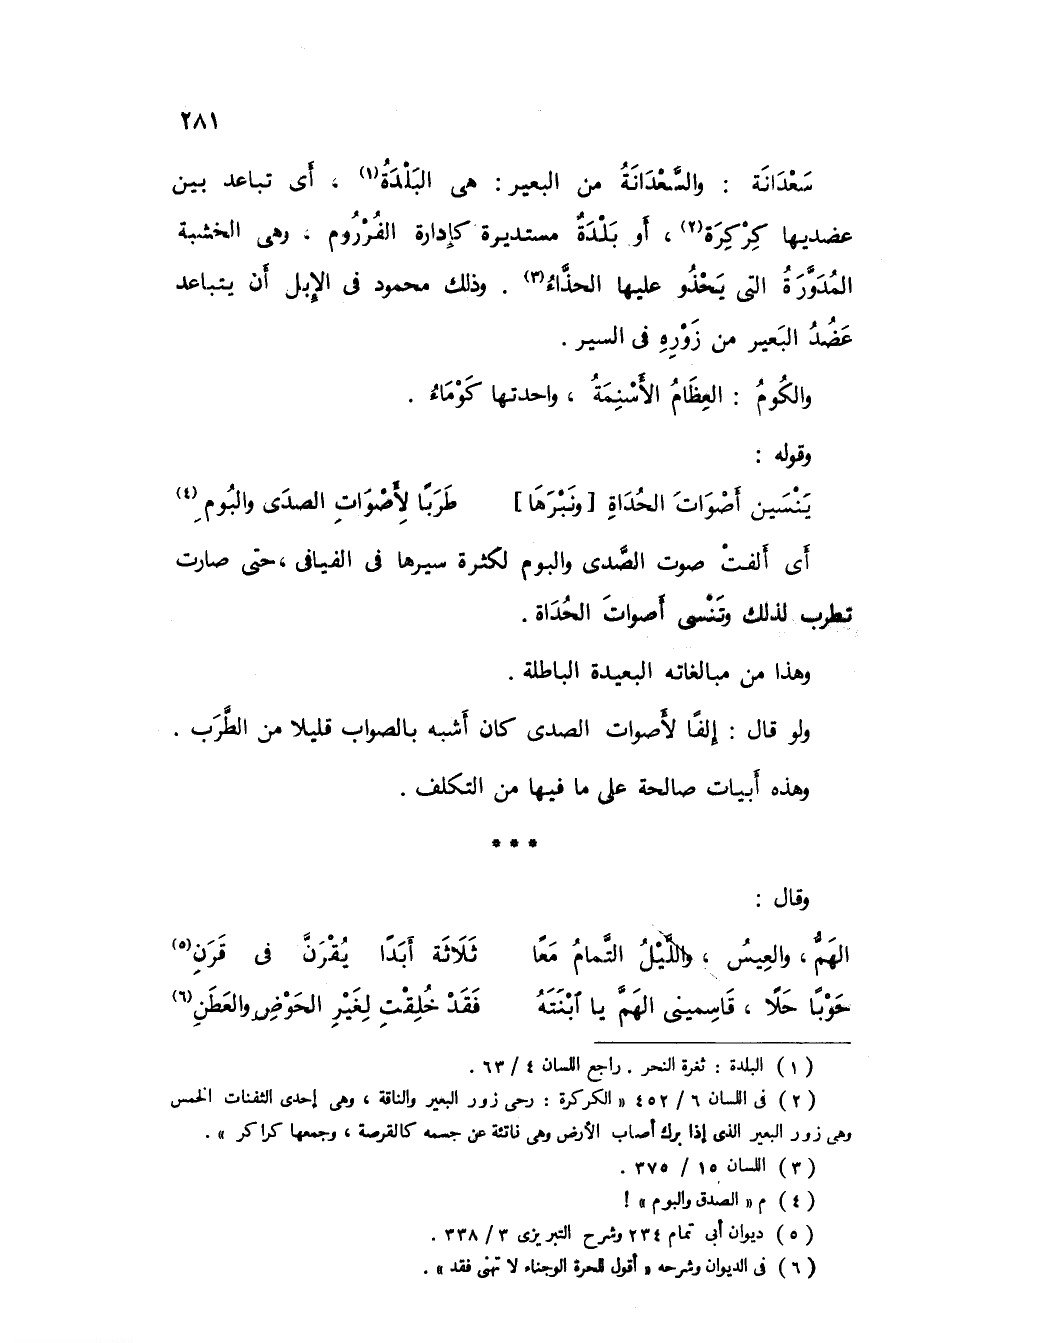 ٢٨١
سَعْدَانَة : والسَّعْدَانَةُ من البعير : هى البَلْدَةُ(١) ، أى تباعد بين
عضديها كِرْكِرَة(٢) ، أو بَلْدَةٌ مستديرة كإدارة الفُرْزُوم ، وهى الخشبة
المُدَوَّرَةُ التى يَحْذُو عليها الحذَّاءُ(٣) . وذلك محمود فى الإبل أن يتباعد
عَضُدُ البَعير من زَوْرِهِ فى السير .
والكُومُ : العِظَامُ الأَسْنِمَةُ ، واحدتها كَوْمَاءُ .
وقوله :
يَنْسَين أَصْوَاتَ الحُدَاةِ [ ونَبْرَهَا ] طَرَبًا لِأَصْوَاتِ الصدَى والبُومِ (٤)
أَى أَلفتْ صوت الصَّدى والبوم لكثرة سيرها فى الفيافى ، حتى صارت
تطرب لذلك وتَنْسى أَصواتَ الحُدَاة .
وهذا من مبالغاته البعيدة الباطلة .
ولو قال : إلفًا لأَصوات الصدى كان أَشبه بالصواب قليلا من الطَّرَب .
وهذه أَبيات صالحة على ما فيها من التكلف .
* * *
وقال :
الهَمُّ ، والعِيسُ ، واللَّيْلُ التَّمامُ مَعًا ثَلَاثَة أَبَدًا يُقْرَنَّ فى قَرَنِ(٥)
حَوْبًا حَلًا ، قَاسِمينى الهَمَّ يا ٱبْنَتَهُ فَقَدْ خُلِقْتِ لِغَيْرِ الحَوْضِ والعَطَنِ(٦)
( ١ ) البلدة : ثغرة النحر . راجع اللسان ٤ / ٦٣ .
( ٢ ) فى اللسان ٦ / ٤٥٢ « الكركرة : رحى زور البعير والناقة ، وهى إحدى الثفنات الخمس
وهى زور البعير الذى إذا برك أصاب الأرض وهى ناتئة عن جسمه كالقرصة ، وجمعها كراكر » .
( ٣ ) اللسان ١٥ / ٣٧٥ .
( ٤ ) م « الصدق والبوم » !
( ٥ ) ديوان أبى تمام ٢٣٤ وشرح التبريزى ٣ / ٣٣٨ .
( ٦ ) فى الديوان وشرحه « أقول للحرة الوجناء لا تهنى فقد » .